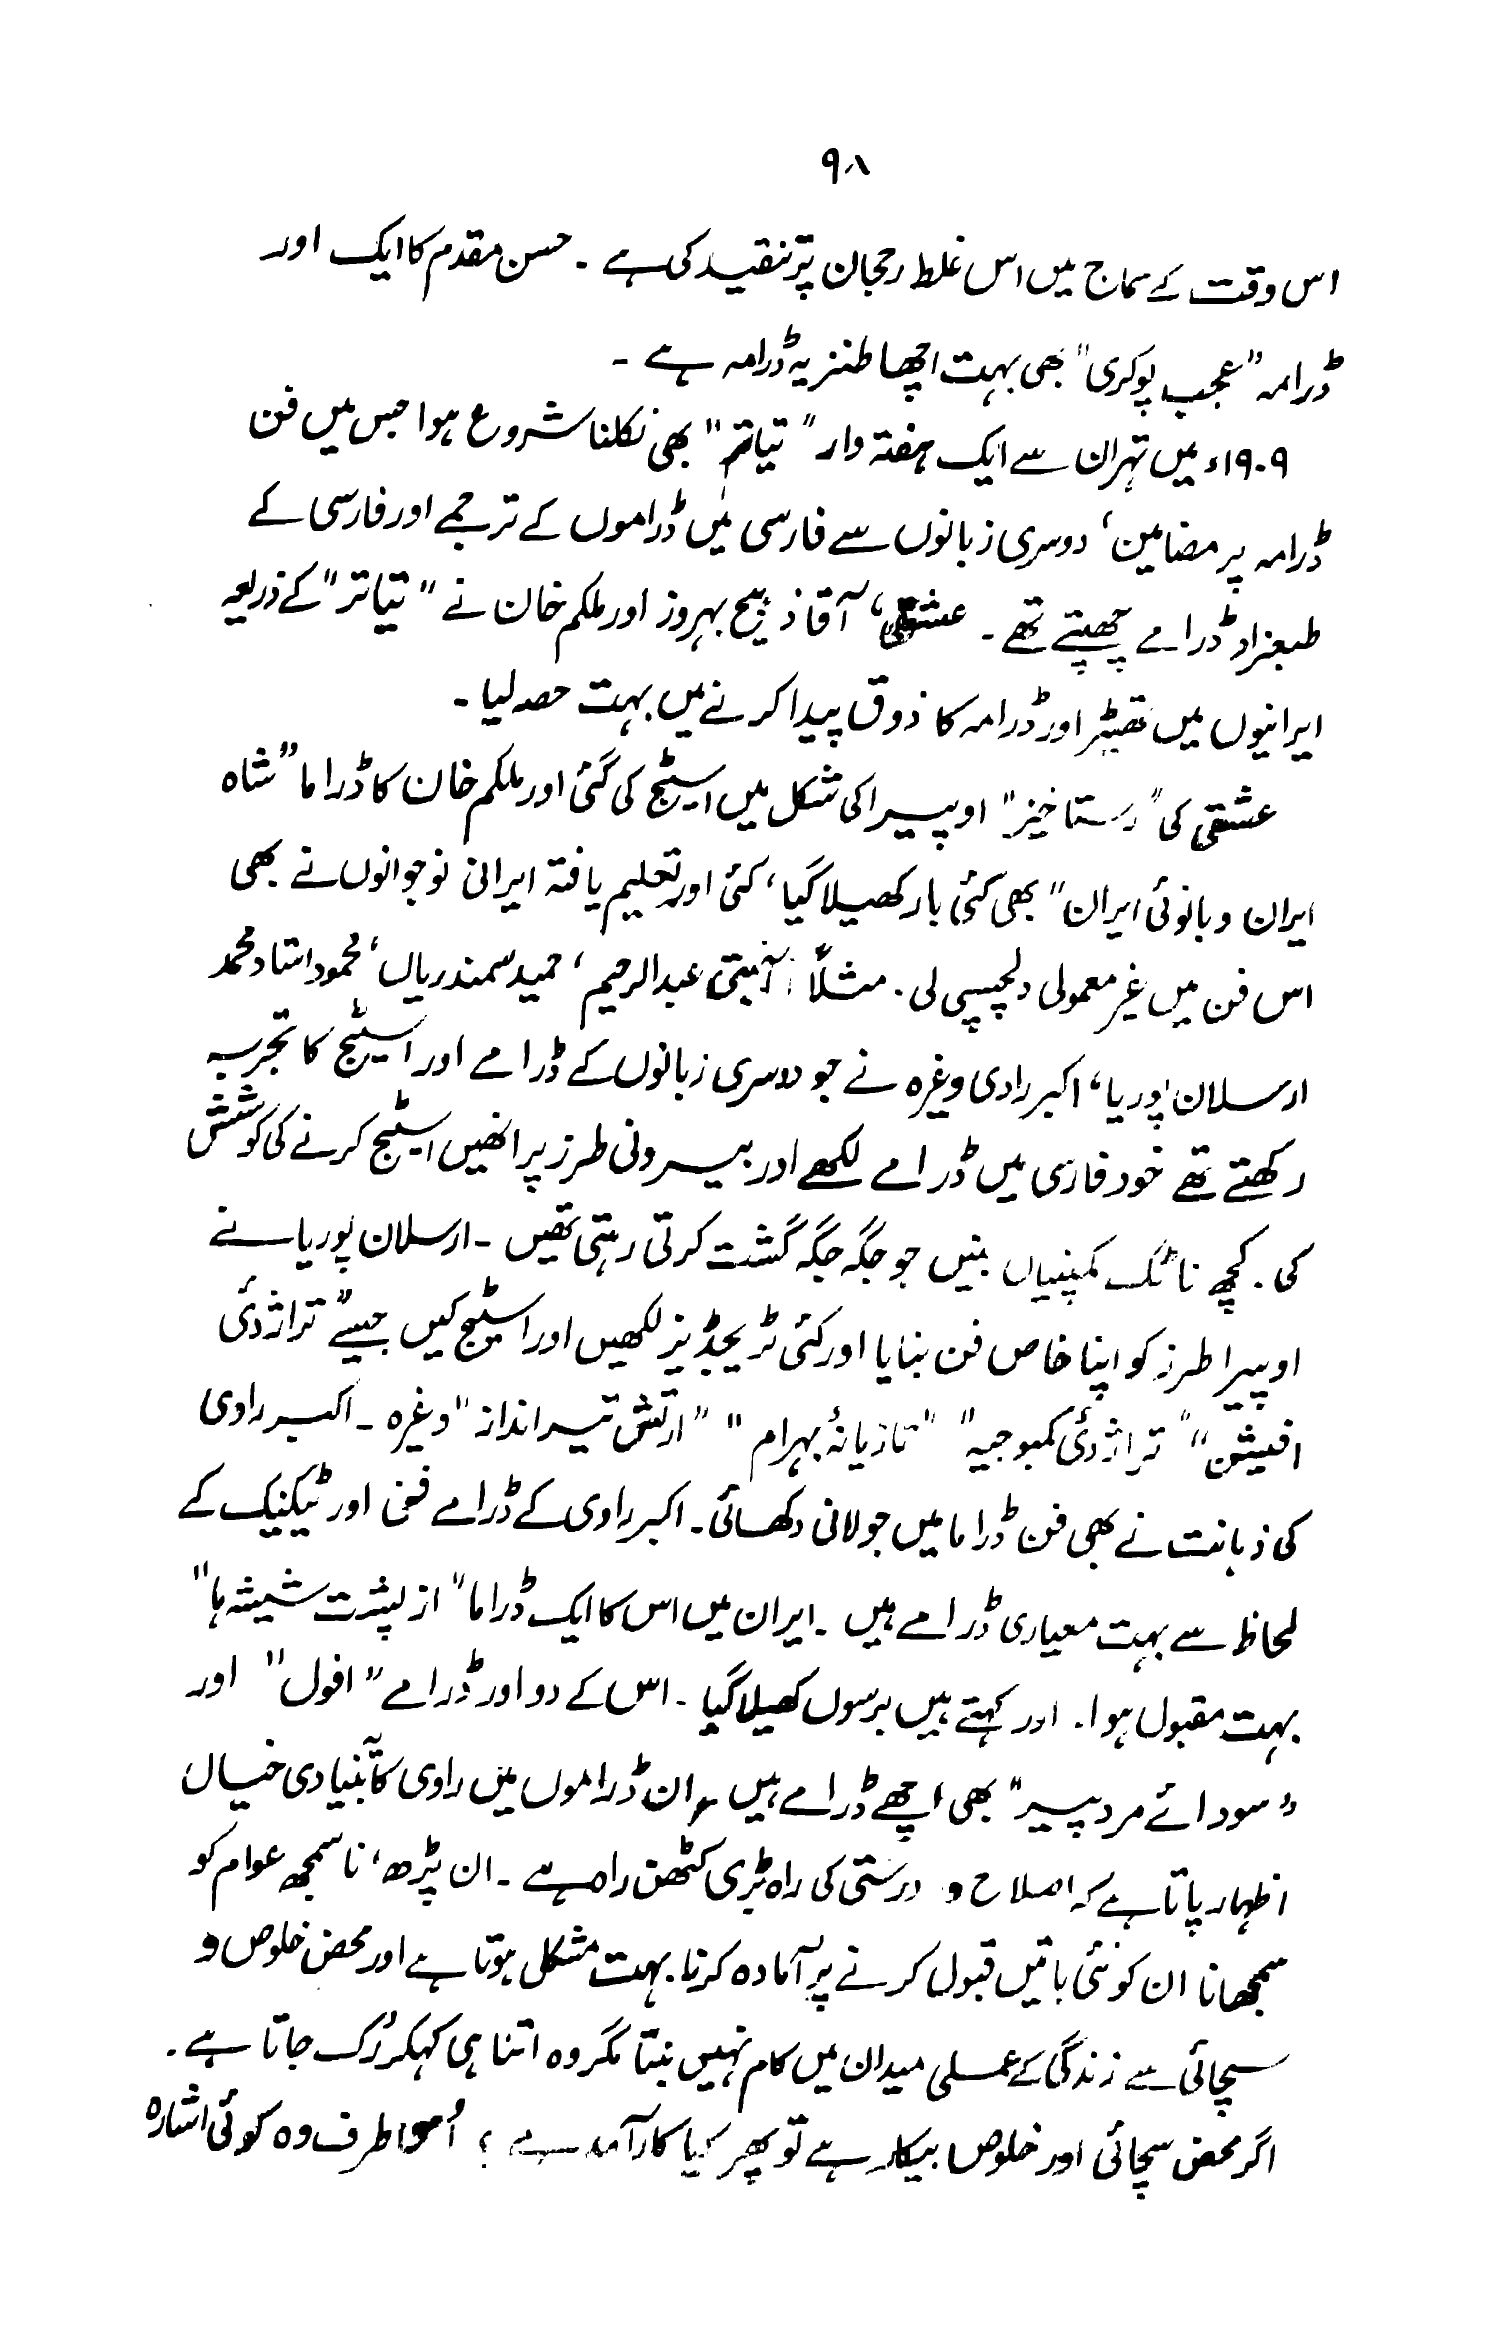 ۹۸
اس وقت کے سماج میں اس غلط رجحان پر تنقید کی ہے ۔ حسن مقدم کا ایک اور
ڈرامہ "عجب پوکری" بھی بہت اچھا طنزیہ ڈرامہ ہے ۔
۱۹۰۹ء میں تہران سے ایک ہفتہ وار "تیاتر" بھی نکلنا شروع ہوا جس میں فن
ڈرامہ پر مضامین، دوسری زبانوں سے فارسی میں ڈراموں کے ترجمے اور فارسی کے
طبعزاد ڈرامے چھپتے تھے ۔ عشقی، آقا ذبیح بہروز اور ملکم خان نے "تیاتر" کے ذریعہ
ایرانیوں میں تھیٹر اور ڈرامہ کا ذوق پیدا کرنے میں بہت حصہ لیا ۔
عشقی کی "رستاخیز" اوپیرا کی شکل میں اسٹیج کی گئی اور ملکم خان کا ڈراما "شاہ
ایران و بانوئی ایران" بھی کئی بار کھیلا گیا، کئی اور تعلیم یافتہ ایرانی نوجوانوں نے بھی
اس فن میں غیر معمولی دلچسپی لی ۔ مثلاً عبدالرحیم، حمید سمندریاں، محمود استاد محمد
ارسلان پوریا، اکبر رادی وغیرہ نے جو دوسری زبانوں کے ڈرامے اور اسٹیج کا تجربہ
رکھتے تھے خود فارسی میں ڈرامے لکھے اور بیرونی طرز پر انھیں اسٹیج کرنے کی کوشش
کی ۔ کچھ ناٹک کمپنیاں بنیں جو جگہ جگہ گشت کرتی رہتی تھیں ۔ ارسلان پوریا نے
اوپیرا طرز کو اپنا خاص فن بنایا اور کئی ٹریجڈیز لکھیں اور اسٹیج کیں جیسے "تراژدئی
افیشن" "تراژدئی کمبوجیہ" "تازیانۂ بہرام" "ارتش تیر انداز" وغیرہ ۔ اکبر رادی
کی ذہانت نے بھی فن ڈراما میں جولانی دکھائی ۔ اکبر رادی کے ڈرامے فنی اور ٹیکنیک کے
لحاظ سے بہت معیاری ڈرامے ہیں ۔ ایران میں اس کا ایک ڈراما "از پشت شیشہ ہا"
بہت مقبول ہوا ۔ اور کہتے ہیں برسوں کھیلا گیا ۔ اس کے دو اور ڈرامے "افول" اور
"سودائے مرد پیر" بھی اچھے ڈرامے ہیں، ان ڈراموں میں راوی کا یہ بنیادی خیال
اظہار پاتا ہے کہ اصلاح و درستی کی راہ بڑی کٹھن راہ ہے ۔ ان پڑھ، نا سمجھ عوام کو
سمجھانا ان کو نئی باتیں قبول کرنے پر آمادہ کرنا بہت مشکل ہوتا ہے اور محض خلوص و
سچائی سے زندگی کے عملی میدان میں کام نہیں بنتا مگر وہ اتنا ہی کہکر رُک جاتا ہے ۔
اگر محض سچائی اور خلوص بیکار ہے تو پھر کیا کارآمد ہے ؟ اُس طرف وہ کوئی اشارہ